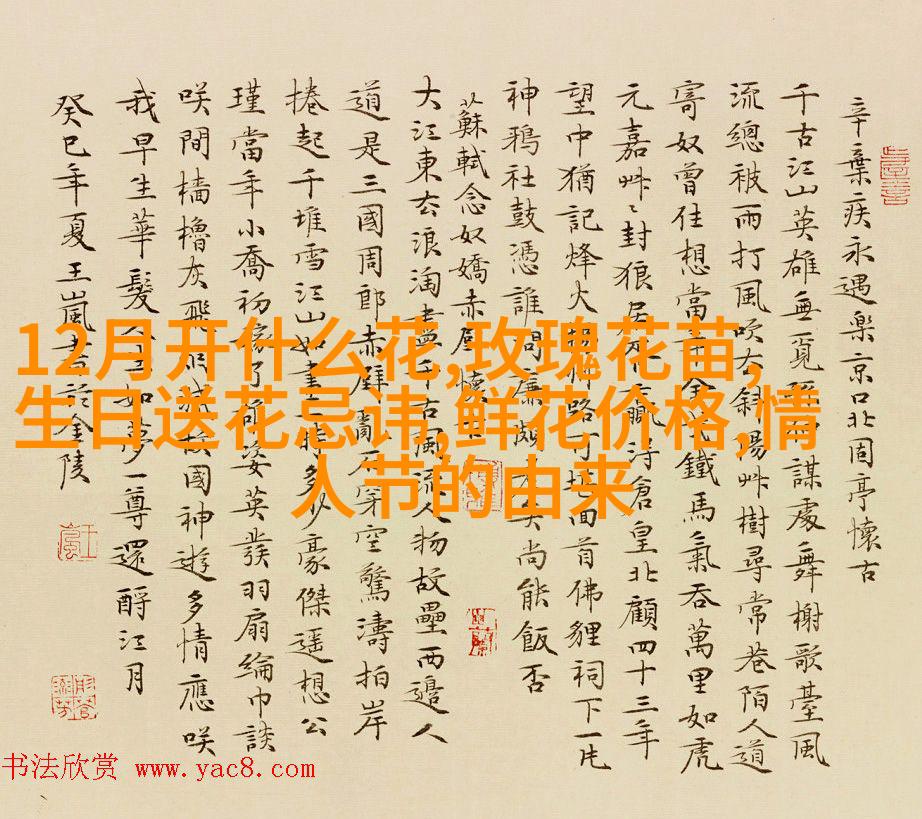 辛棄疾永遇樂京口北固亭懷古
千古江山英雄無覓孫仲謀處舞榭歌臺風
流總被雨打風吹去斜陽艸樹尋常巷陌人道
寄奴曾住想當年金戈鐵馬氣吞萬里如虎
元嘉艸〻封狼居胥贏得倉皇北顧四十三年
望中猶記烽火揚州路可堪回首佛貍祠下一片
神鴉社鼓憑誰問廉頗老矣尚能飯否
蘇軾念奴嬌赤壁懷古
大江東去浪淘盡千古風流人物故壘西邊人
道是三國周郎赤壁亂石穿空驚濤拍岸
捲起千堆雪江山如畫一時多少豪傑遙想公
瑾當年小喬初嫁了雄姿英發羽扇綸巾談
咲間檣櫓灰飛煙滅故國神遊多情應咲
我早生華髮人生如夢一尊還酹江月
癸巳年夏王嵐書於金陵
12月开什么花,玫瑰花苗,
生日送花忌讳,鲜花价格,情
人节的由来
书法欣赏 www.yac8.com